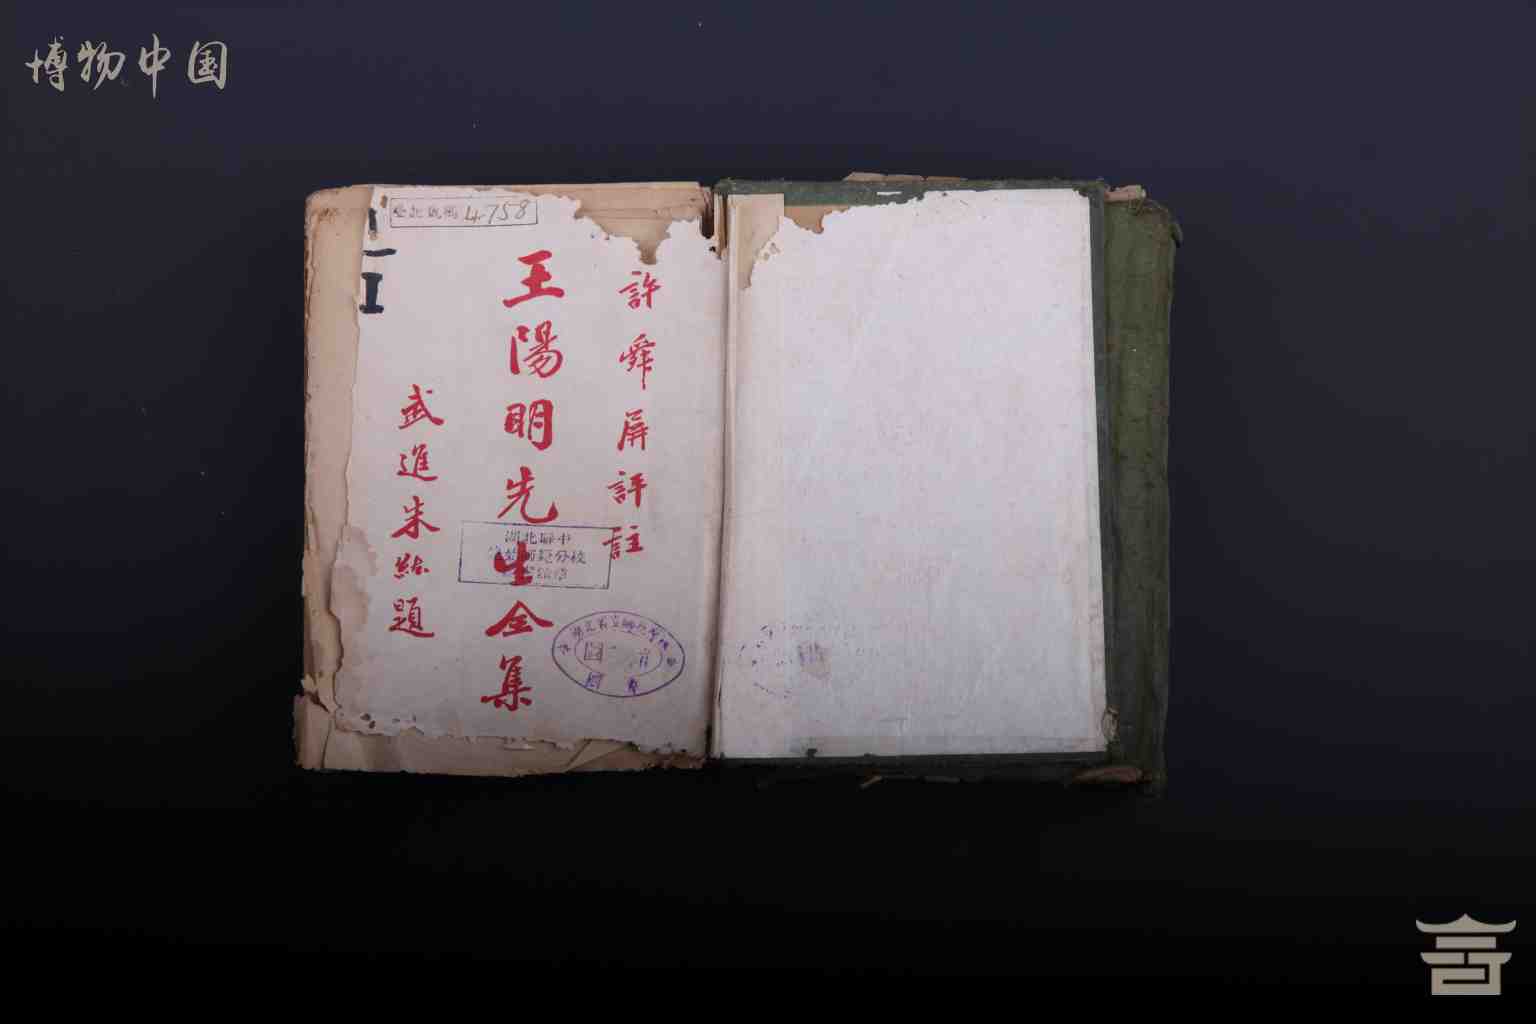 博物中国
登記號碼 4758
許舜屏評註
王陽明先生全集
武進朱題
湖北聯中
師範分校